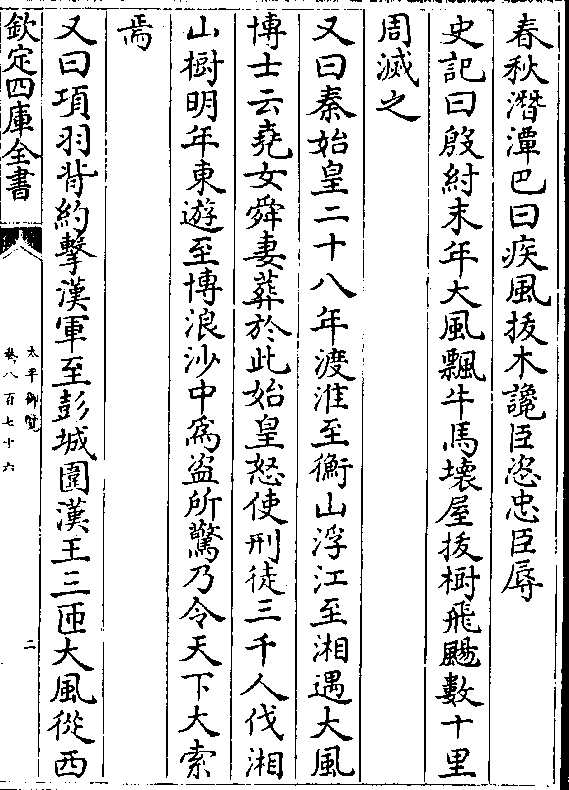 春秋潛潭巴曰疾風拔木讒臣恣忠臣辱
史記曰殷紂末年大風飄牛馬壞屋拔樹飛颺數十里
周滅之
又曰秦始皇二十八年渡淮至衡山浮江至湘遇大風
博士云堯女舜妻葬於此始皇怒使刑徒三千人伐湘
山樹明年東遊至博浪沙中爲盜所驚乃令天下大索
焉
又曰項羽背約擊漢軍至彭城圍漢王三匝大風從西
欽定四庫全書
太平御覽
卷八百七十六
二